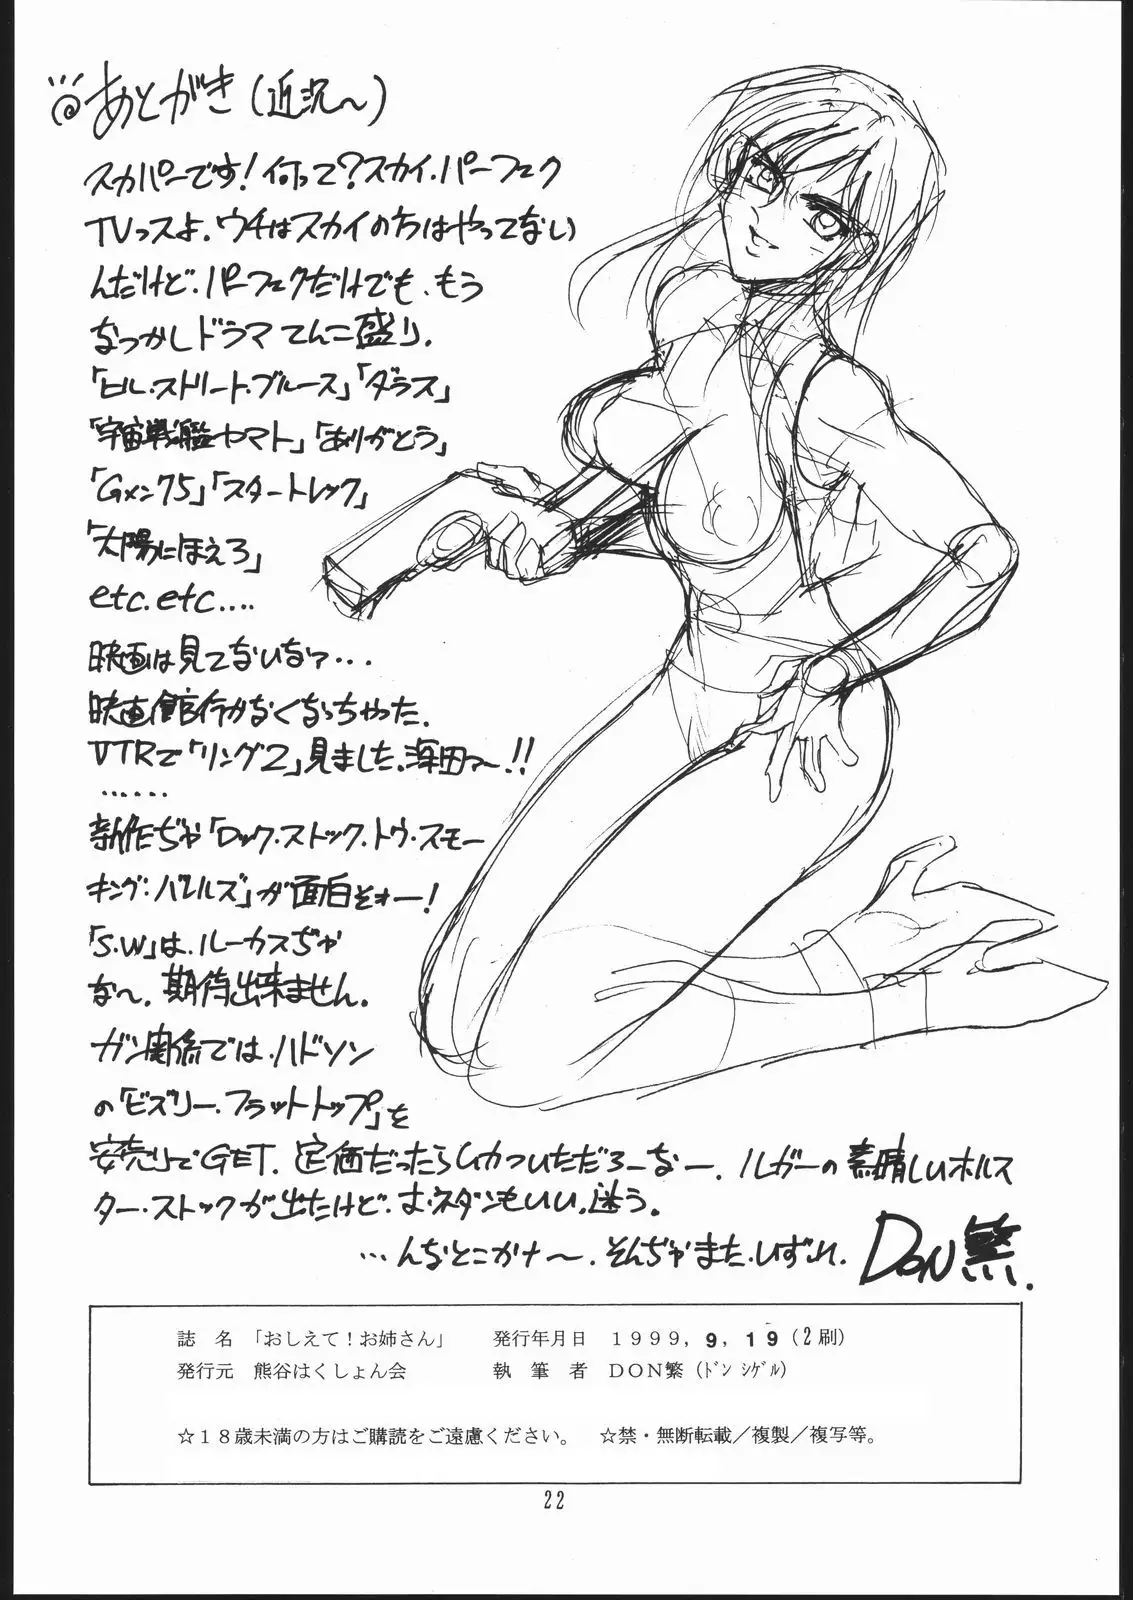 あとがき(近況〜)
スカパーです!何って?スカイ・パーフェク
TVっスよ。ウチはスカイの方はやってない
んだけど、パーフェクだけでも、もう
なつかしドラマてんこ盛り。
「ヒル・ストリート・ブルース」「ダラス」
「宇宙戦艦ヤマト」「ありがとう」
「Gメン75」「スタートレック」
「太陽にほえろ」
etc.etc....
映画は見てないなァ...
映画館行かなくなっちゃった。
VTRで「リング2」見ました。海田ァ〜!!
......
新作だぢゃ「ロック・ストック・トゥ・スモー
キング・バレルズ」が面白そォー!
「S.W」は、ルーカスぢゃ
な〜。期待出来ません。
ガン関係では、ハドソン
の「ビズリー・フラットトップ」を
安売りでGET。定価だったらムカついただろーなー。ルガーの素晴しいホルス
ター・ストックが出たけど、お・ネダンもいい。迷う。
...んなとこかナ〜。そんぢゃまた、いずれ。 DON繁.
誌 名 「おしえて!お姉さん」 発行年月日 1999, 9, 19(2刷)
発行元 熊谷はくしょん会 執 筆 者 DON繁(ドン シゲル)
☆18歳未満の方はご購読をご遠慮ください。 ☆禁・無断転載/複製/複写等。
22